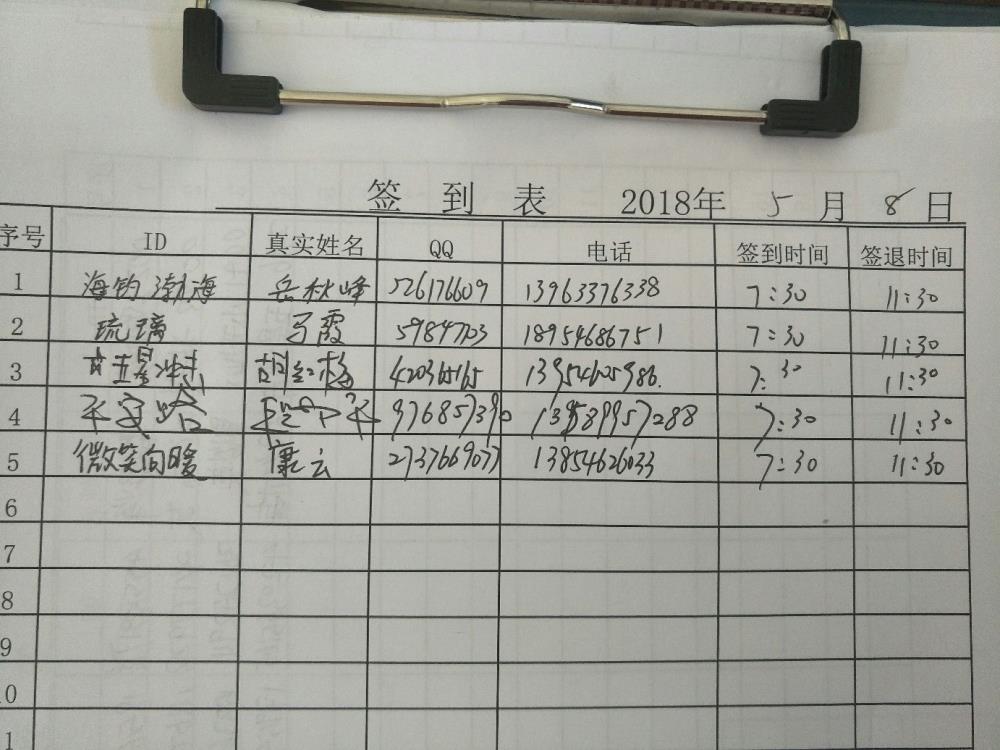 签到表 2018年 5月 8日
序号 ID 真实姓名 QQ 电话 签到时间 签退时间
1 海钓渤海 岳秋峰 526176609 13963376338 7:30 11:30
2 琉璃 马霞 59847703 18954686751 7:30 11:30
3 420365165 13954605986. 7:30 11:30
4 976857390 13589957288 7:30 11:30
5 微笑向暖 康云 2737669077 13854626033 7:30 11:30
6
7
8
9
10